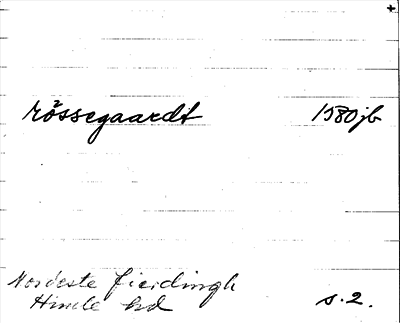 Rössegaardt 1580 jb
Nordeste fierdingh
Himle hd s. 2.